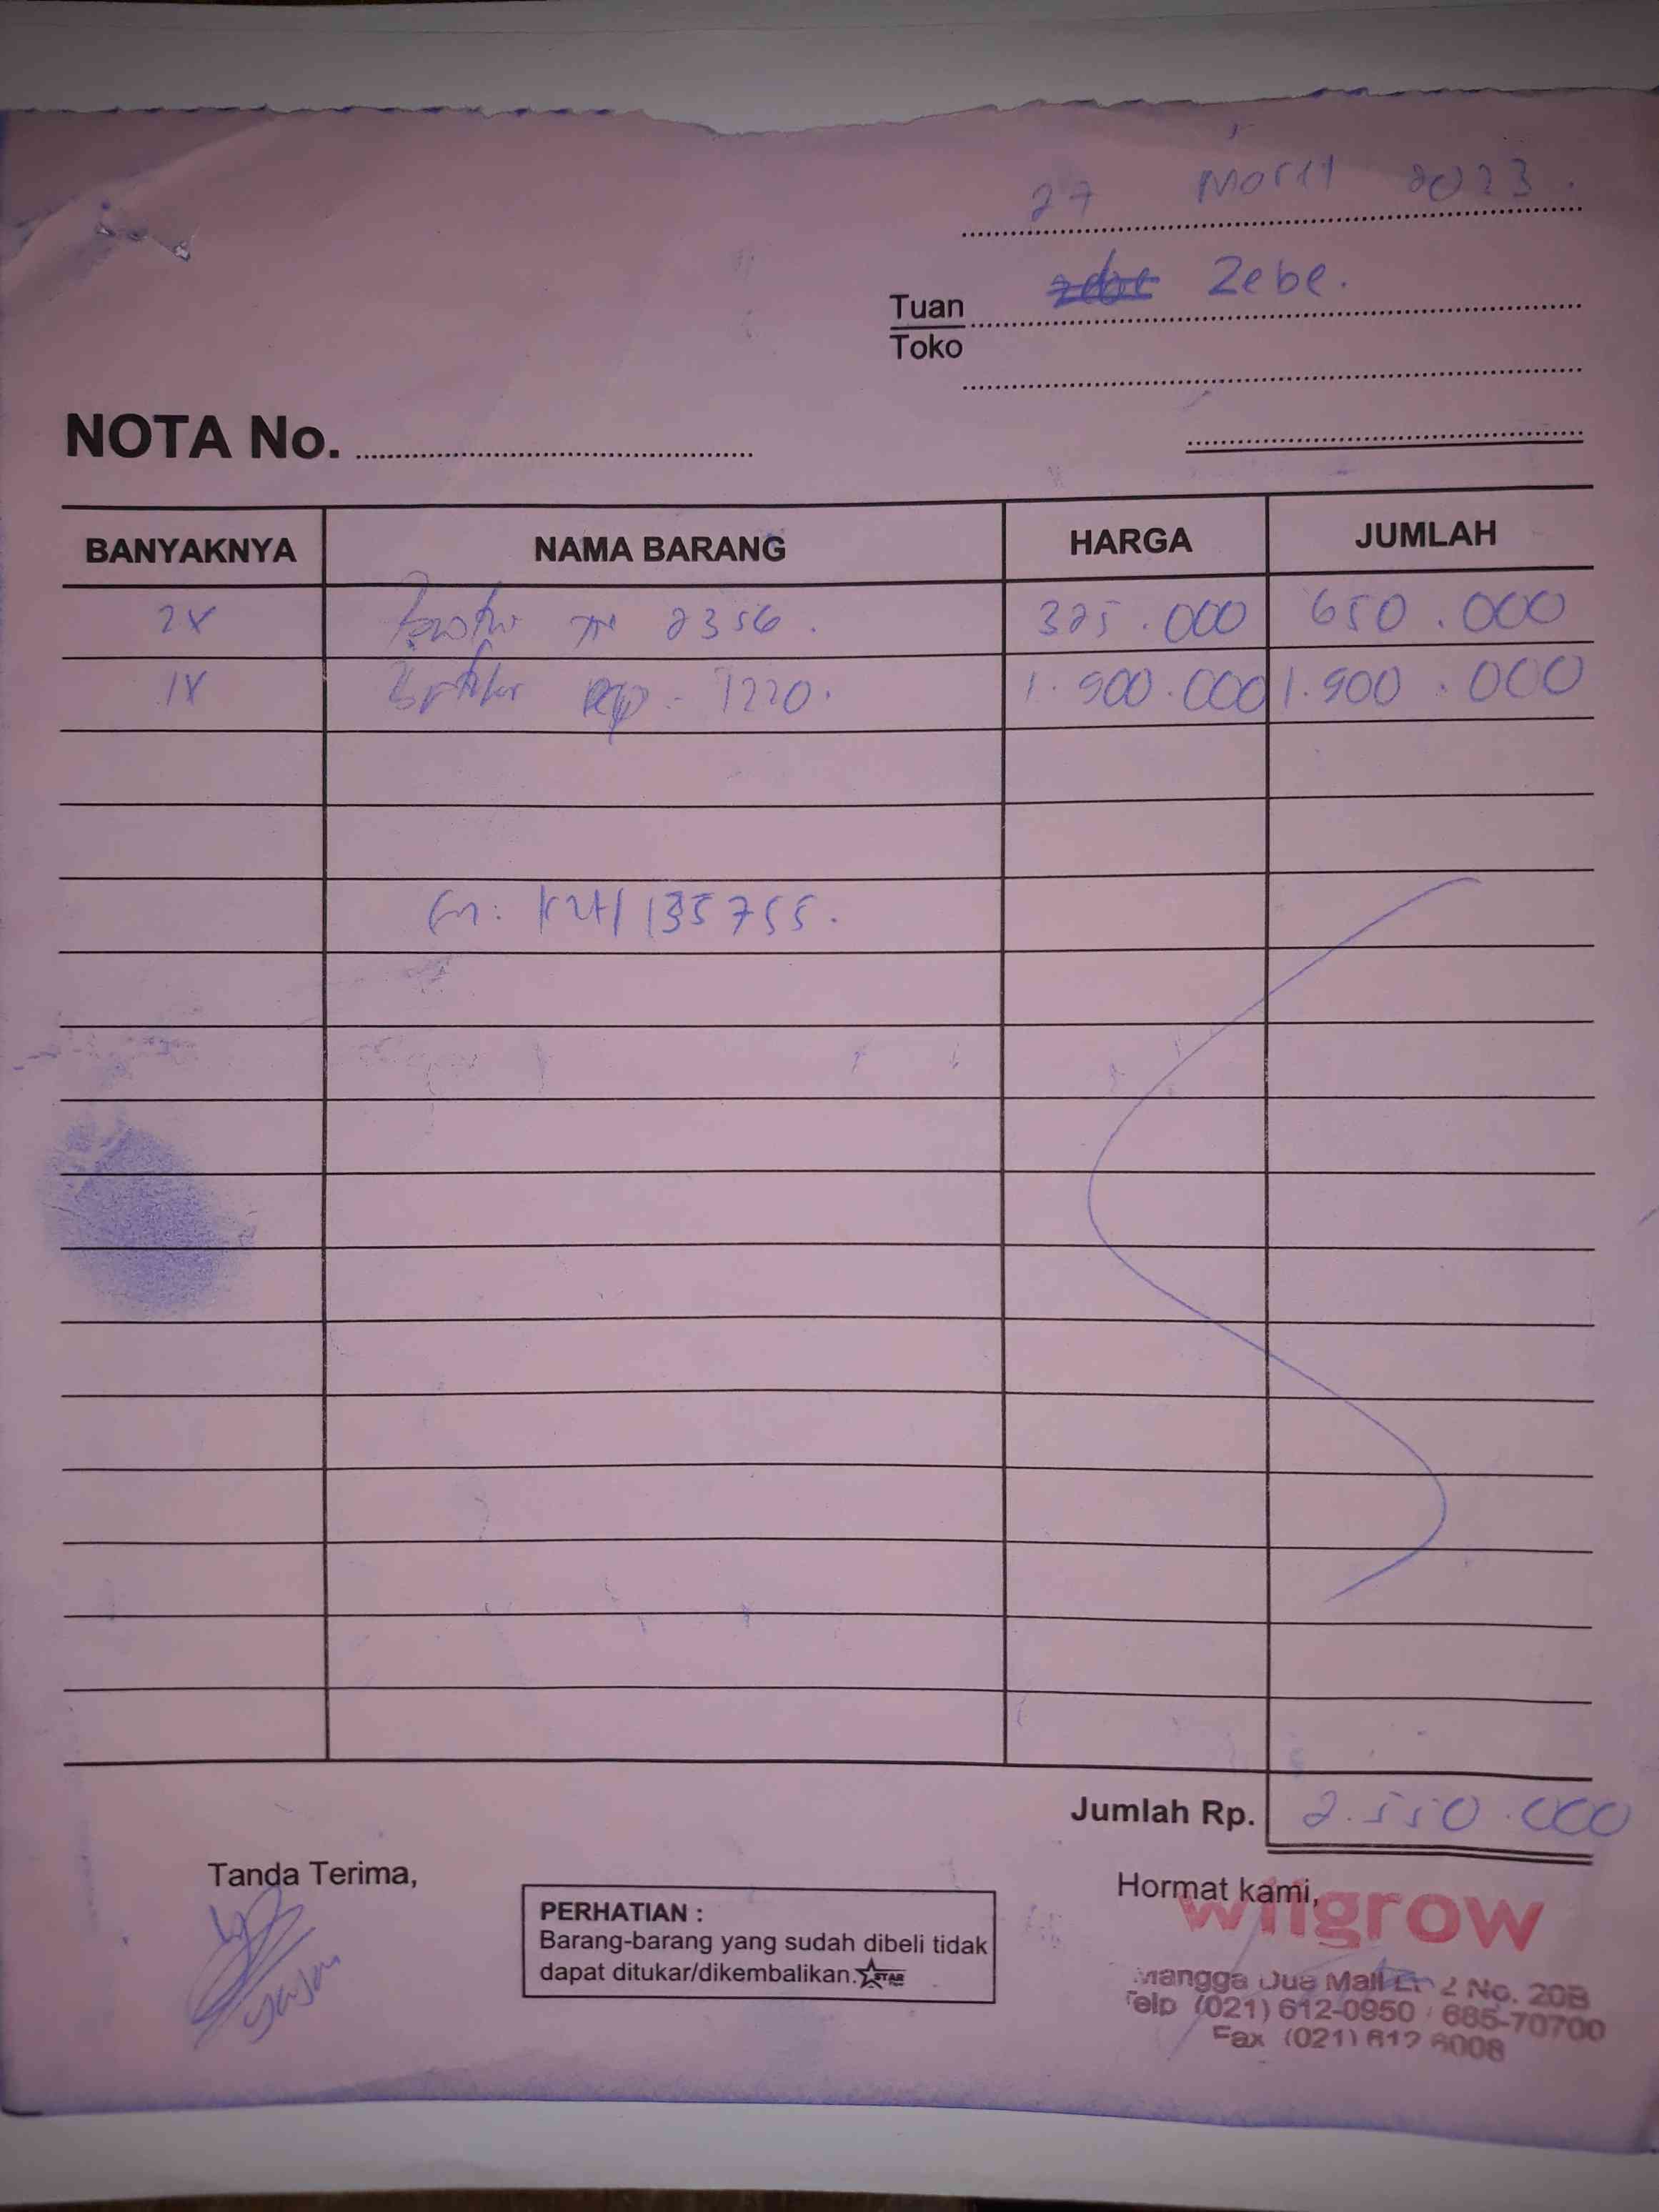 27 Maret 2023.
Tuan Zebe.
Toko
NOTA No.
BANYAKNYA NAMA BARANG HARGA JUMLAH
2X TN 2356. 325.000 650.000
1X 1220. 1.900.000 1.900.000
135755.
Jumlah Rp. 2.550.000
Tanda Terima,
Hormat kami,
PERHATIAN :
Barang-barang yang sudah dibeli tidak
dapat ditukar/dikembalikan. STAR
wilgrow
Mangga Dua Mall Lt 2 No. 20B
Telp (021) 612-0950 / 685-70700
Fax (021) 612 6008